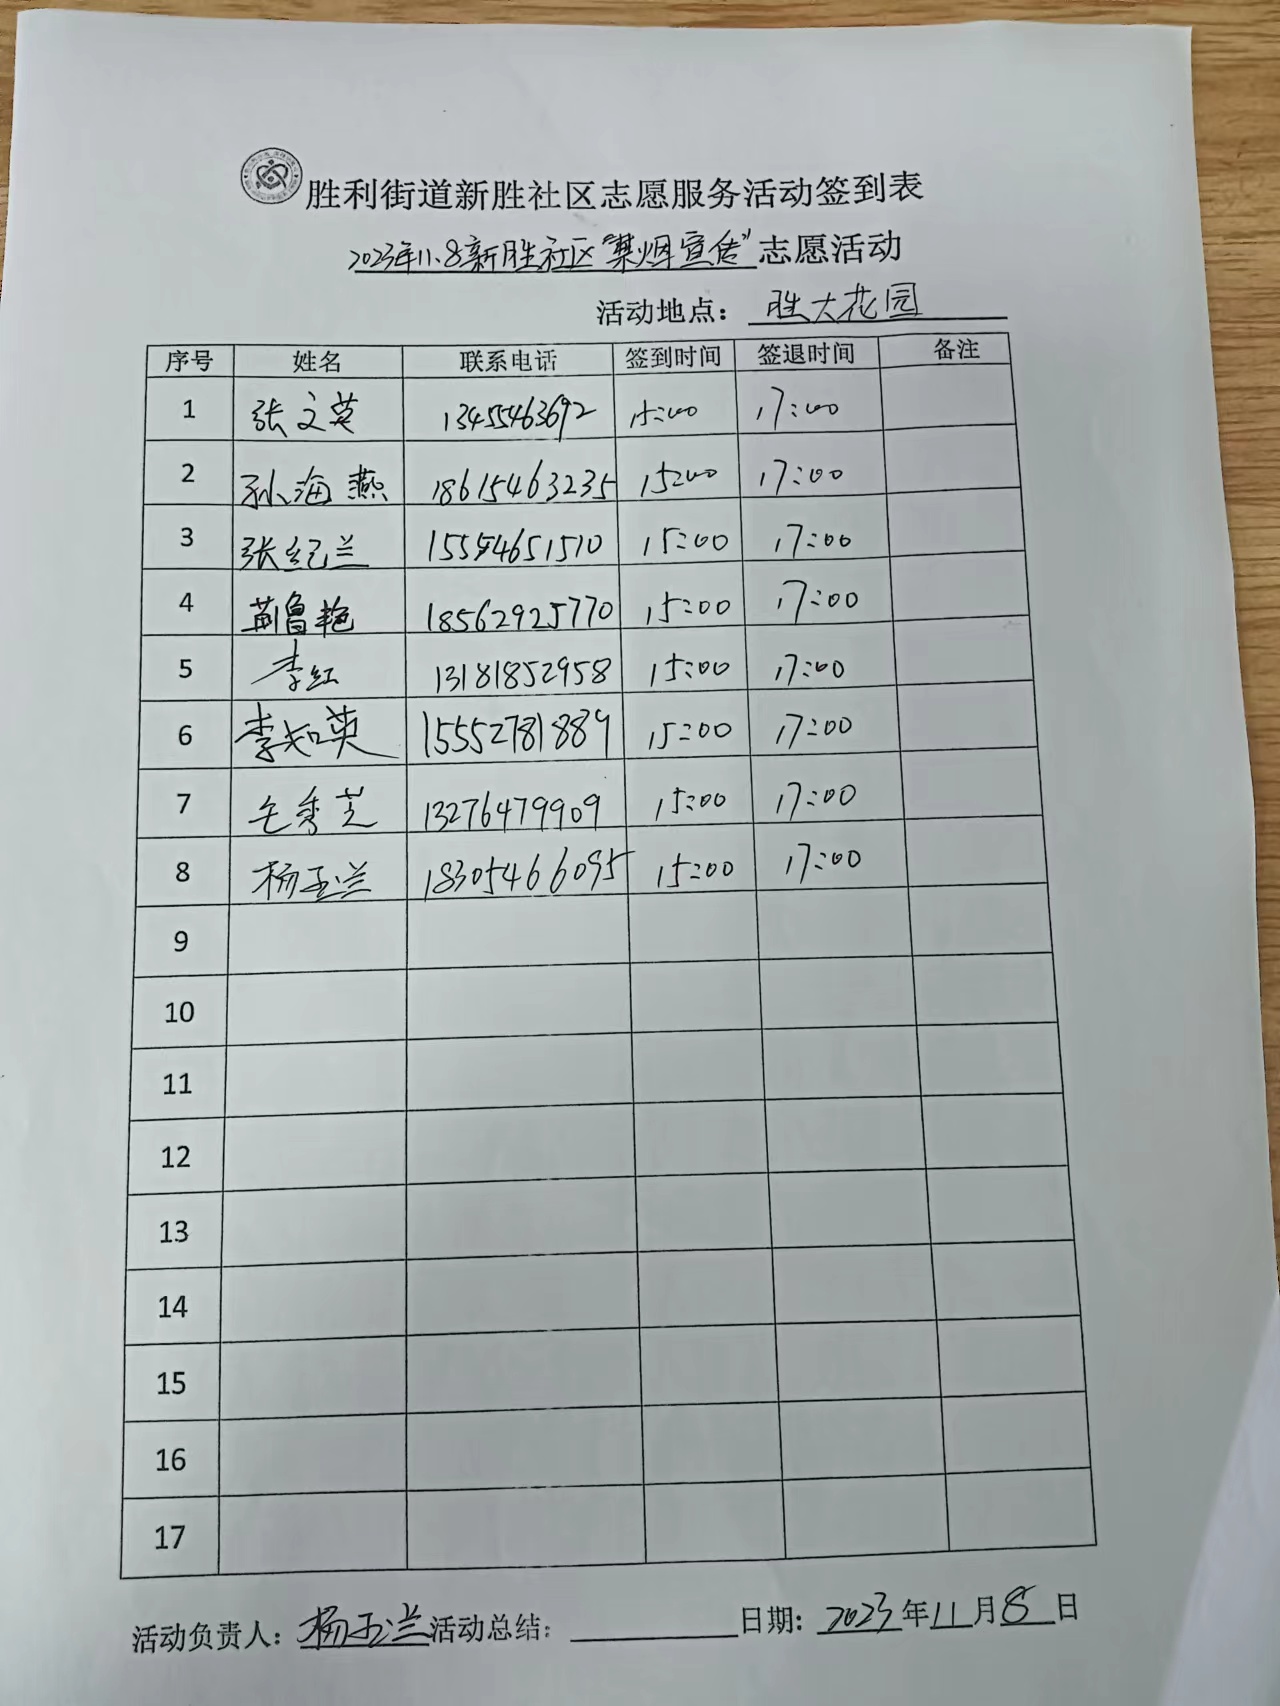 胜利街道新胜社区志愿服务活动签到表
2023年11.8新胜社区"禁烟宣传"志愿活动
活动地点：胜大花园
序号 姓名 联系电话 签到时间 签退时间 备注
1 张文英 13455463692 15:00 17:00
2 孙海燕 18615463235 15:00 17:00
3 张纪兰 15554651510 15:00 17:00
4 荆鲁艳 18562925770 15:00 17:00
5 李红 13181852958 15:00 17:00
6 李知英 15552781889 15:00 17:00
7 毛秀芝 13276479909 15:00 17:00
8 杨玉兰 18305466095 15:00 17:00
9
10
11
12
13
14
15
16
17
活动负责人：杨玉兰 活动总结： 日期：2023年11月8日